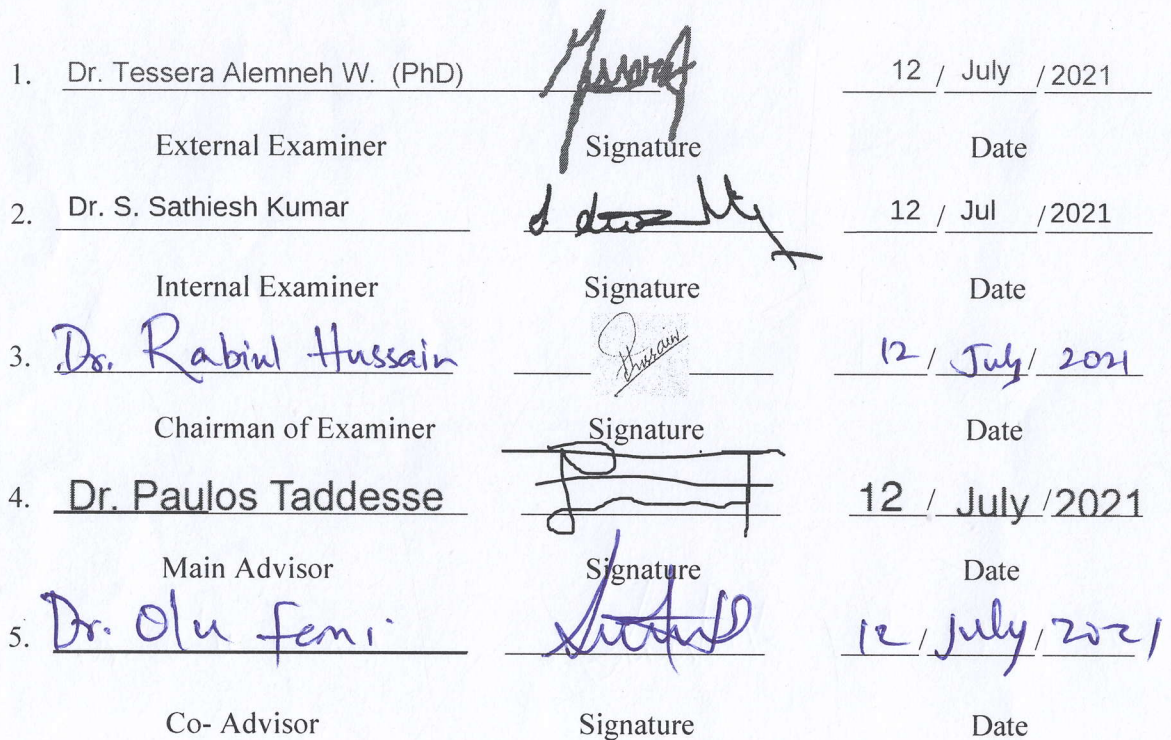 1. Dr. Tessera Alemneh W. (PhD) 12 / July / 2021
External Examiner Signature Date
2. Dr. S. Sathiesh Kumar 12 / Jul / 2021
Internal Examiner Signature Date
3. Dr. Rabiul Hussain Husain 12 / July / 2021
Chairman of Examiner Signature Date
4. Dr. Paulos Taddesse 12 / July / 2021
Main Advisor Signature Date
5. Dr. Olu Femi 12 / July / 2021
Co- Advisor Signature Date